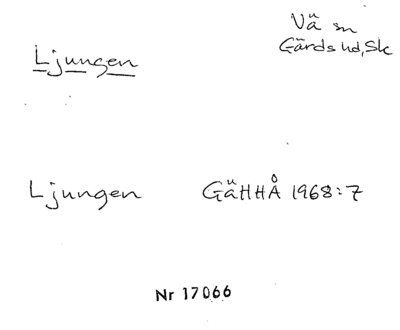 Vä sn
Gärds hd, Sk
Ljungen
Ljungen GäHHÅ 1968:7
Nr 17066